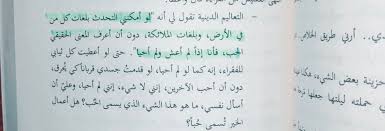 – التعاليم الدينية تقول لي أنه "لو أمكنني التحدث بلغات كل من
في الأرض، وبلغات الملائكة، دون أن أعرف المعنى الحقيقي
للحب، فأنا إذاً لم أعش ولم أحيا". حتى لو أعطيت كل ثيابي
للفقراء، إنه كما لو لم أحيا، لو قدمتُ جسدي قرباناً كي يُحرق،
دون أن أحب الآخرين، إنه لا شيء، إنه كما لو لم أحيا، وعليّ أن
أسأل نفسي، ما هو هذا الشيء الذي يسمى الحُبّ؟ هل أعمال
الخير تُسمى حُباً؟
دي.. أرني طريق الخلاص
حزينة بعض الشيء، هكذا
حملته ليلتها جعلها تر